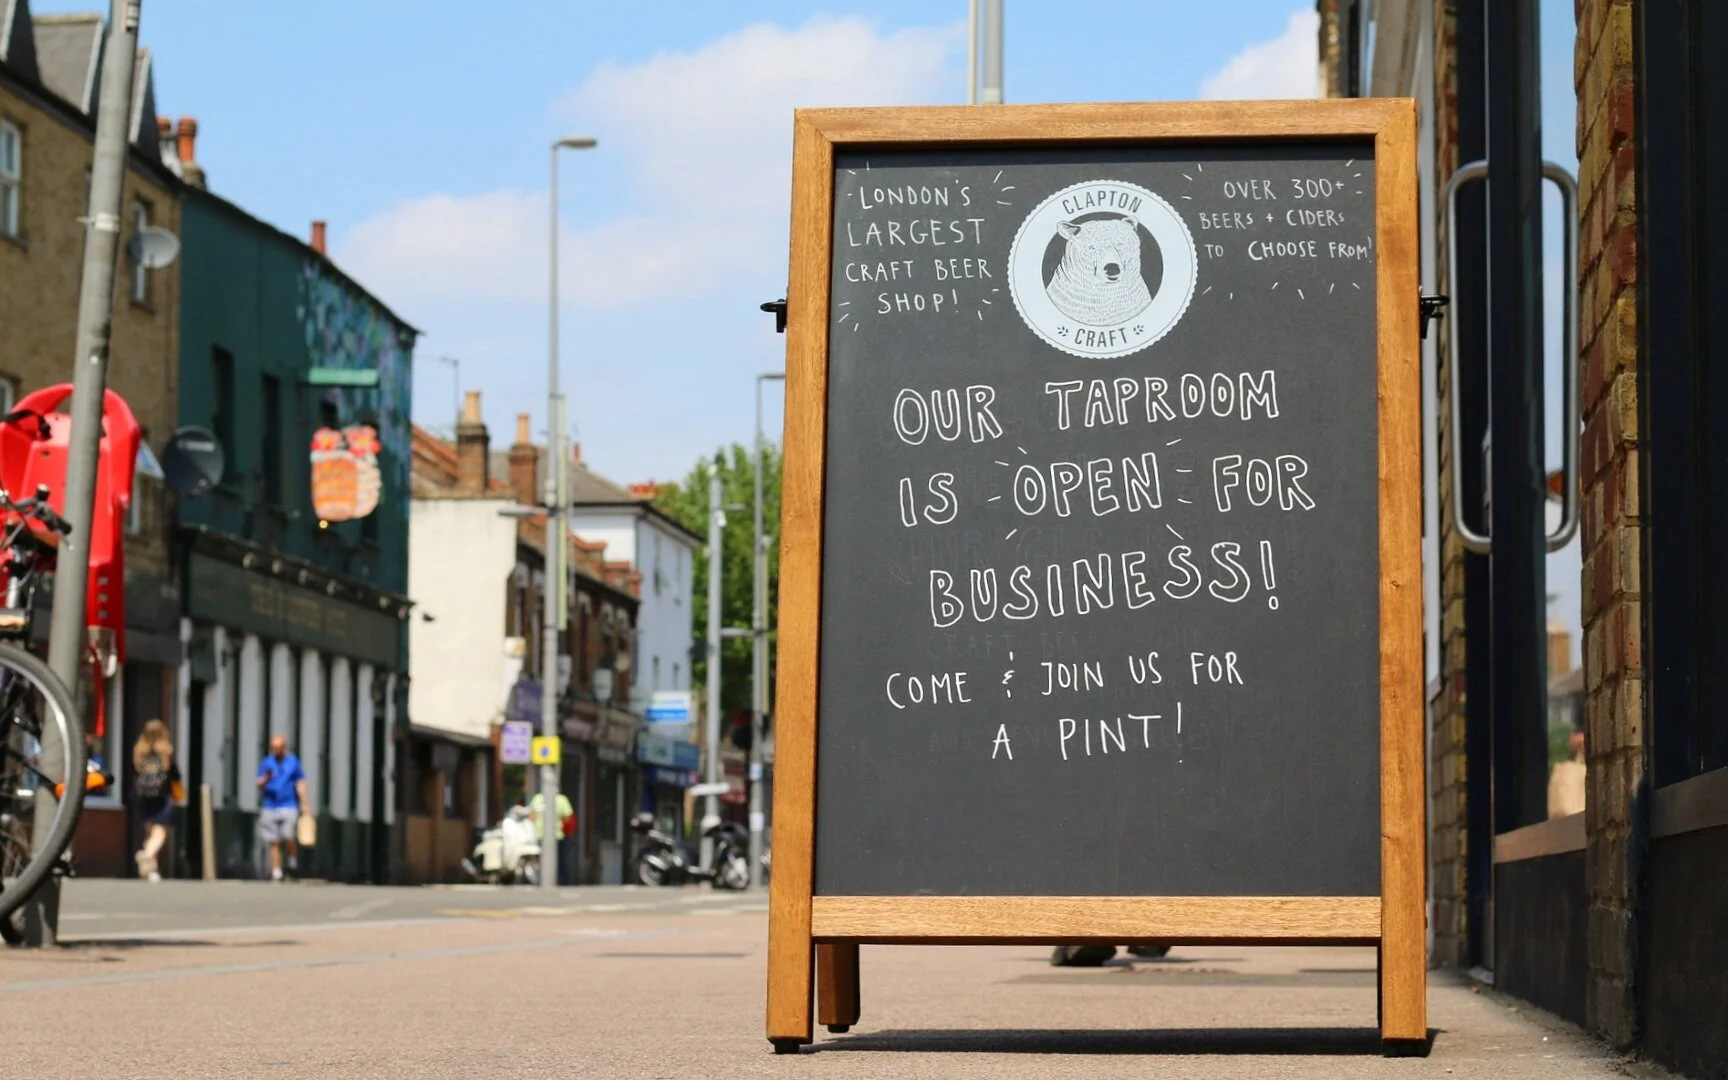 LONDON'S
LARGEST
CRAFT BEER
SHOP!
CLAPTON
CRAFT
OVER 300+
BEERS + CIDERS
TO CHOOSE FROM!
OUR TAPROOM
IS OPEN FOR
BUSINESS!
COME & JOIN US FOR
A PINT!